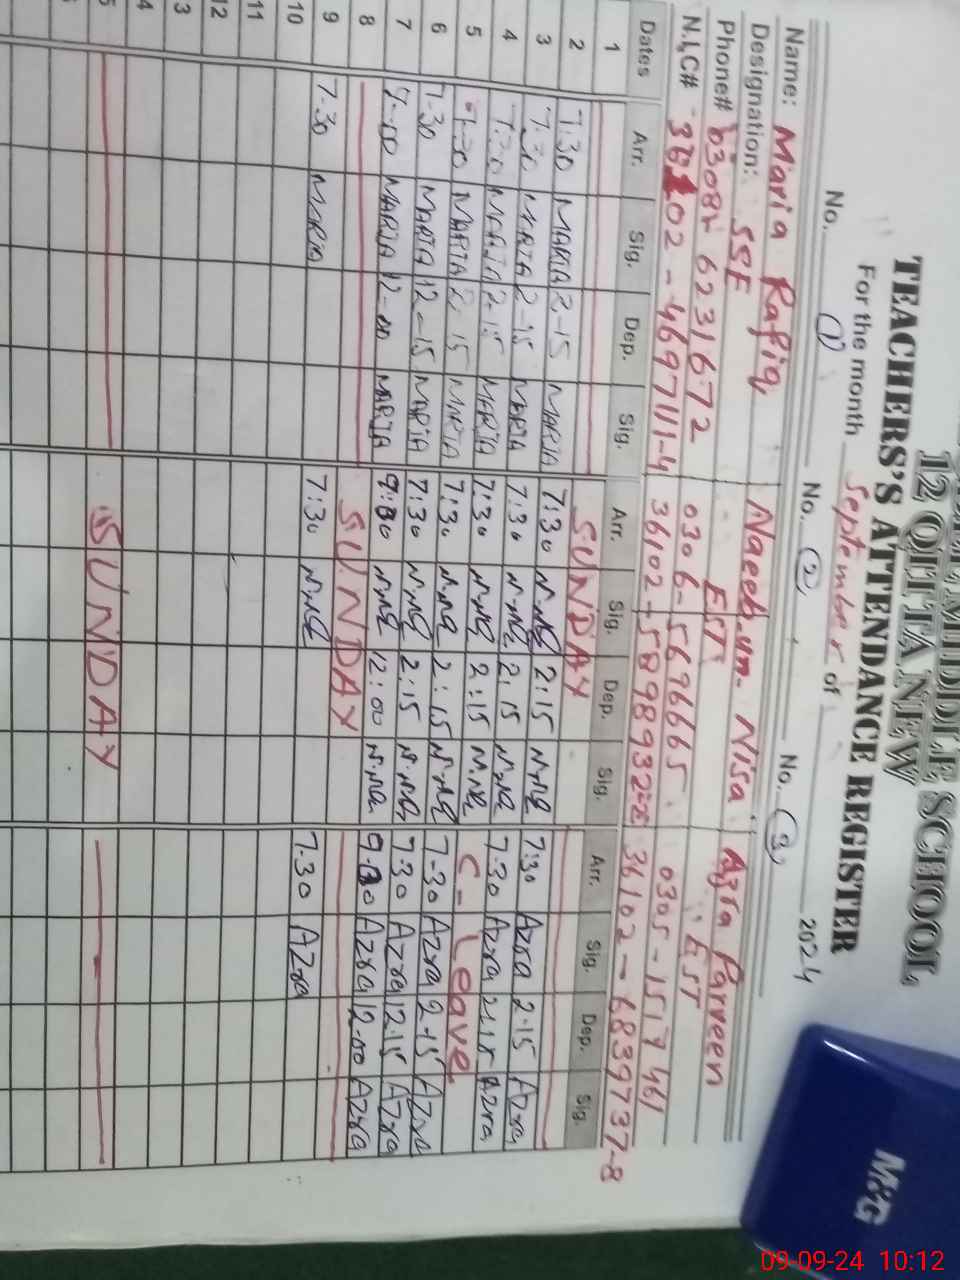 MIDDLE SCHOOL
12 QITTA NEW
TEACHERS'S ATTENDANCE REGISTER
For the month September of 2024
No. (1) No. (2) No. (3)
Name: Maria Rafiq Naeeb-un-Nisa Azra Parveen
Designation: SSE EST EST
Phone# 6231672 0306-5696665 0305-1517461
N.I,C# 02-4697111-4 36102-5898932 36102-6839737-8
Dates Arr. Sig. Dep. Sig. Arr. Sig. Dep. Sig. Arr. Sig. Dep. Sig.
1 SUNDAY
2 7:30 MARIA 2-15 MARIA 7:30 2:15 7:30 Azra 2-15 Azra
3 7:30 MARIA 2-15 MARIA 7:30 2:15 7:30 Azra 2:15 Azra
4 7:30 MARIA 2-15 MARIA 7:30 2:15 C-Leave
5 7:30 MARIA 2-15 MARIA 7:30 2:15 7-30 Azra 2-15 Azra
6 7-30 MARIA 12-15 MARIA 7:30 2:15 7:30 Azra 12-15 Azra
7 MARIA 12-00 MARIA 12:00 Azra 12-00 Azra
8 SUNDAY
9 7-30 MARIA 7:30 7.30 Azra
10
11
12
13
14
SUNDAY
M&G
09-09-24 10:12